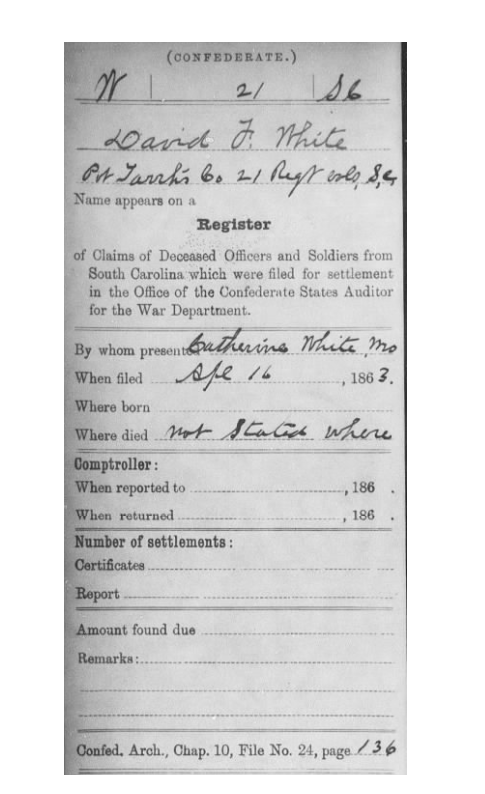 (CONFEDERATE.)
W | 21 | S C
David F. White
Pvt Tarrh's Co. 21 Regt vols, S,C,
Name appears on a
Register
of Claims of Deceased Officers and Soldiers from
South Carolina which were filed for settlement
in the Office of the Confederate States Auditor
for the War Department.
By whom presented Catherine White, Mo
When filed Apl 16, 1863.
Where born
Where died not Stated where
Comptroller:
When reported to , 186 .
When returned , 186 .
Number of settlements:
Certificates
Report
Amount found due
Remarks:
Confed. Arch., Chap. 10, File No. 24, page 136